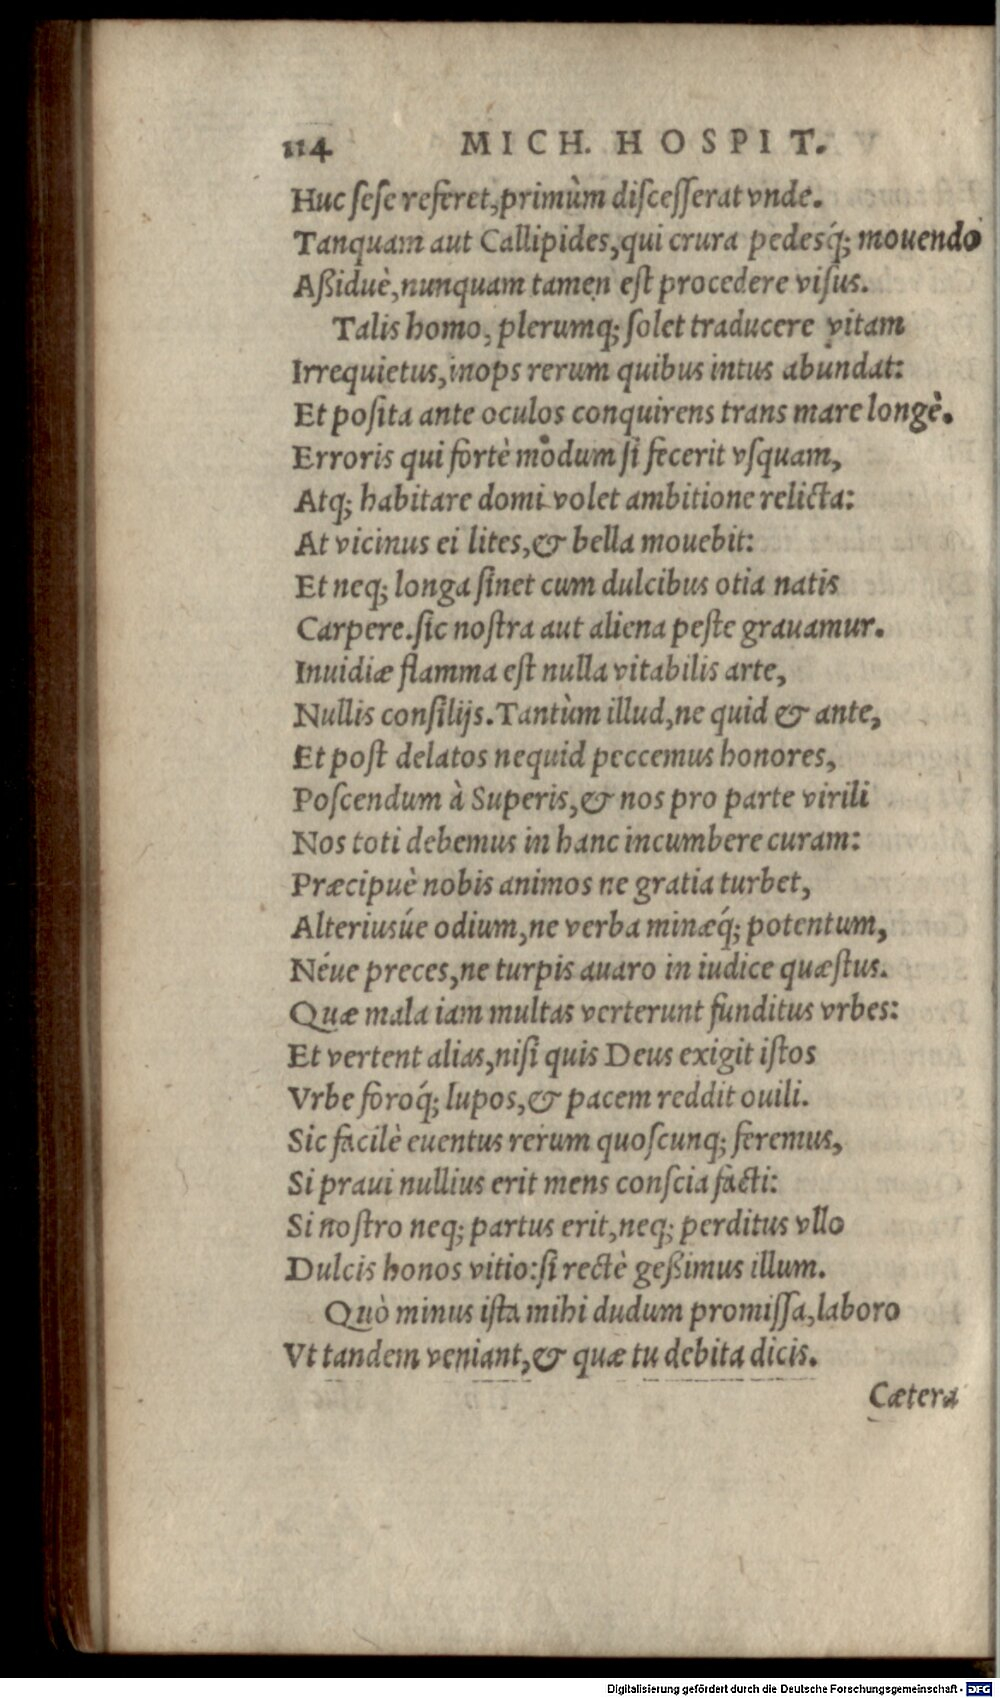 114 MICH. HOSPIT.
Huc ſeſe referet, primùm diſceſſerat vnde.
Tanquam aut Callipides, qui crura pedesq́; mouendo
Aßiduè, nunquam tamen eſt procedere viſus.
Talis homo, plerumq; ſolet traducere vitam
Irrequietus, inops rerum quibus intus abundat:
Et poſita ante oculos conquirens trans mare longè.
Erroris qui fortè modum ſi fecerit vſquam,
Atq; habitare domi volet ambitione relicta:
At vicinus ei lites, & bella mouebit:
Et neq; longa ſinet cum dulcibus otia natis
Carpere. ſic noſtra aut aliena peſte grauamur.
Inuidiæ flamma eſt nulla vitabilis arte,
Nullis conſilijs. Tantùm illud, ne quid & ante,
Et poſt delatos nequid peccemus honores,
Poſcendum à Superis, & nos pro parte virili
Nos toti debemus in hanc incumbere curam:
Præcipuè nobis animos ne gratia turbet,
Alteriusúe odium, ne verba minæq́; potentum,
Néue preces, ne turpis auaro in iudice quæſtus.
Quæ mala iam multas verterunt funditus vrbes:
Et vertent alias, niſi quis Deus exigit iſtos
Vrbe foroq́; lupos, & pacem reddit ouili.
Sic facilè euentus rerum quoſcunq; feremus,
Si praui nullius erit mens conſcia facti:
Si noſtro neq; partus erit, neq; perditus vllo
Dulcis honos vitio: ſi rectè geßimus illum.
Quò minus iſta mihi dudum promiſſa, laboro
Vt tandem veniant, & quæ tu debita dicis.
Cætera
Digitalisierung gefördert durch die Deutsche Forschungsgemeinschaft - DFG